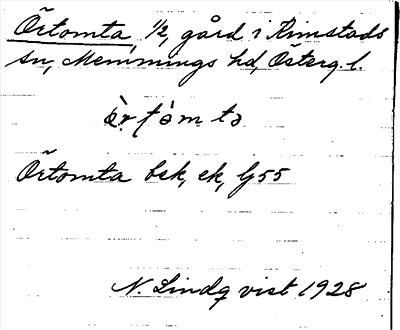 Örtomta 1/2, gård i Kimstads
sn, Memmings hd, Österg. l.
ò̩r t ò m tə
Örtomta bsk, ek, G55
N. Lindqvist 1928